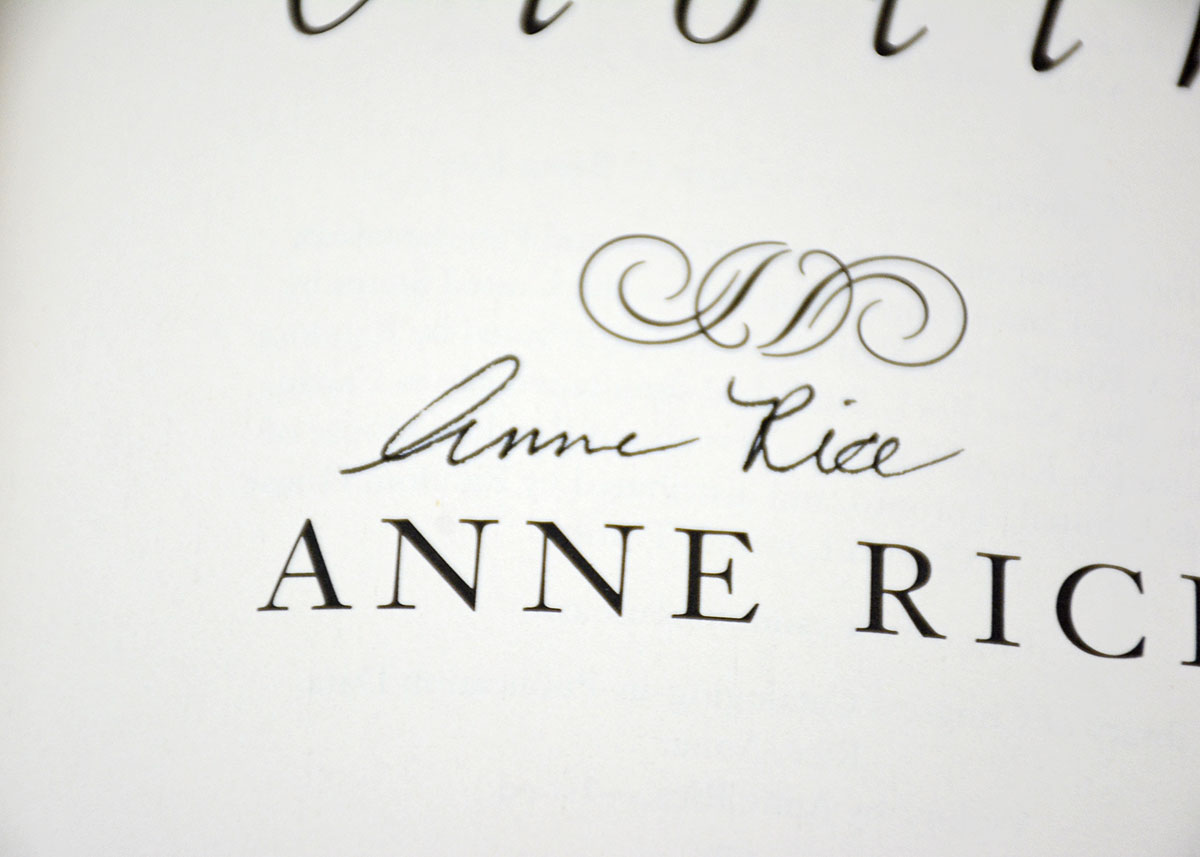 Anne Rice
ANNE RICE